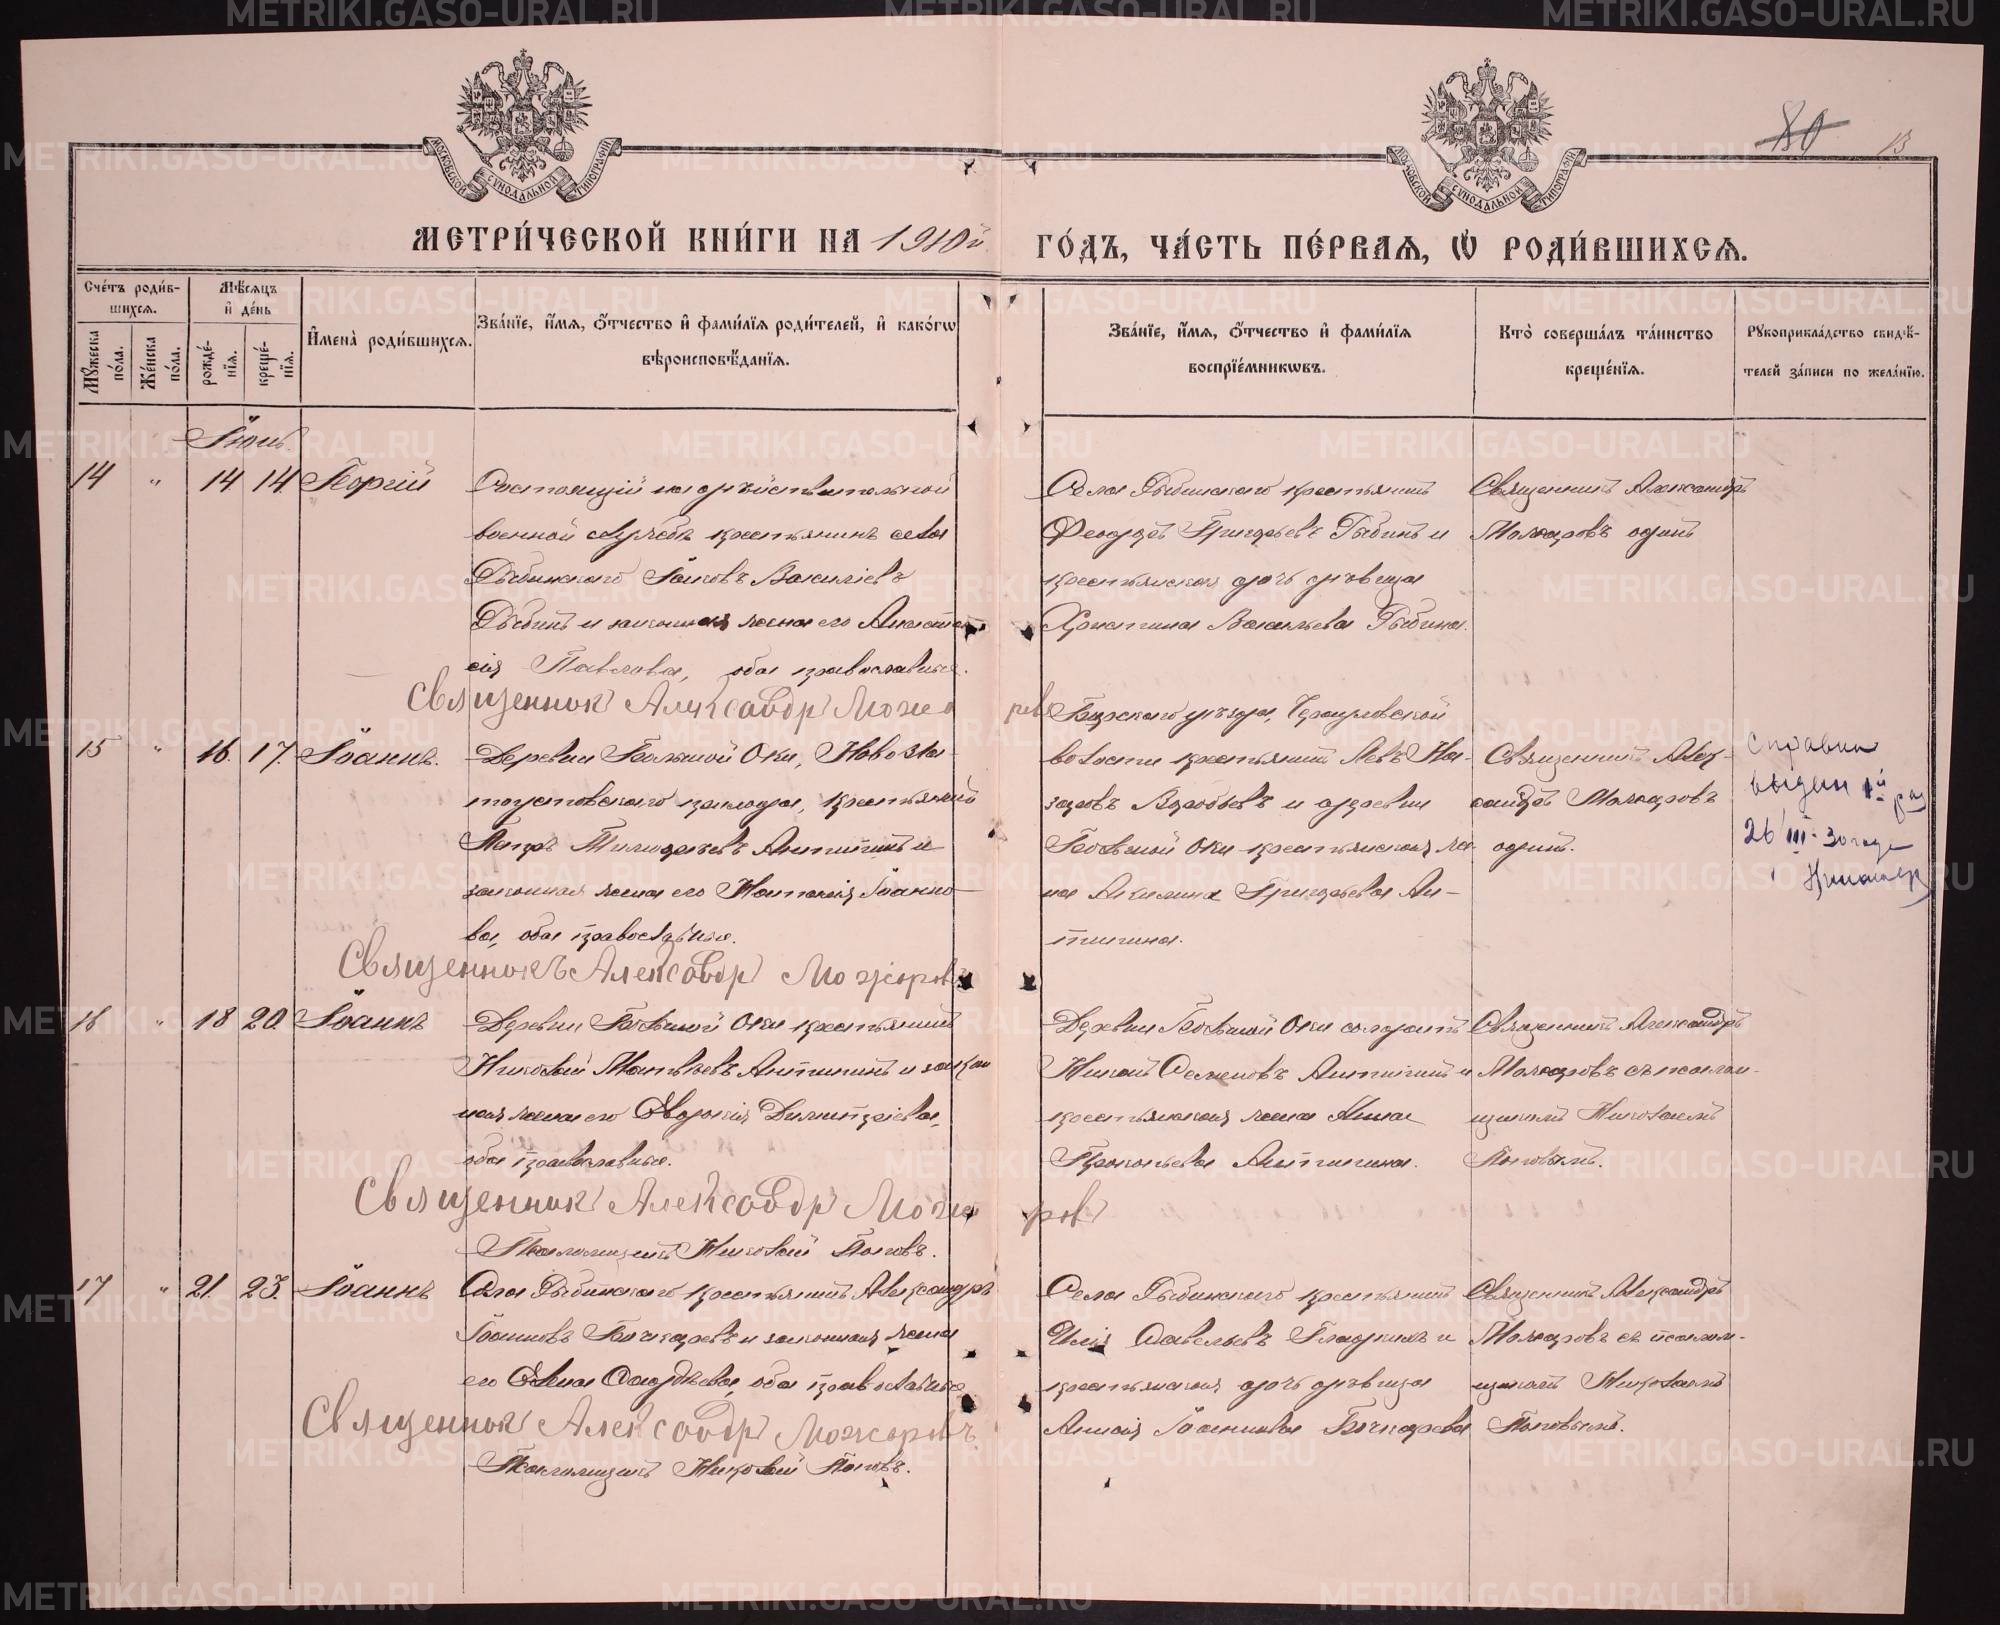 80 13
МОСКОВСКОЙ СУНОДАЛЬНОЙ ТИПОГРАФІИ
МОСКОВСКОЙ СУНОДАЛЬНОЙ ТИПОГРАФІИ
МЕТРИ́ЧЕСКОЙ КНИ́ГИ НА 1910й
ГО́ДЪ, ЧА́СТЬ ПЕ́РВАѦ, Ѽ РОДИ́ВШИХСѦ.
Сче́тъ роди́в-
шихсѧ.
Мѣ́сѧцъ
и҆ де́нь
Мꙋ́жеска по́ла.
Же́нска по́ла.
рожде́-
нїѧ.
креще́-
нїѧ.
И҆мена̀ роди́вшихсѧ.
Зва́нїе, и҆́мѧ, ѻ҆́тчество и҆ фами́лїѧ роди́телей, и҆ како́гѡ
вѣроисповѣ́данїѧ.
Зва́нїе, и҆́мѧ, ѻ҆́тчество и҆ фами́лїѧ
воспрїе́мникѡвъ.
Кто̀ соверша́лъ та́инство
креще́нїѧ.
Рꙋкоприкла́дство свидѣ́-
телей за́писи по жела́нїю.
Іюнь.
14 " 14 14 Георгій
Состоящій на дѣйствительной
военной службѣ крестьянинъ села
Рыбинскаго Іаковъ Василіевъ
Рыбинъ и законная жена его Анаста-
сія Павлова, оба православные.
Священник Александр Можа
ров
Села Рыбинскаго крестьянинъ
Феодоръ Григорьевъ Рыбинъ и
крестьянская дочь дѣвица
Христина Васильева Рыбина.
Священникъ Александръ
Можаровъ одинъ
15 " 16. 17. Іоаннъ.
Деревни Большой Оки, Ново-Зла-
тоустовского прихода, крестьянинъ
Петръ Тимофеевъ Антипинъ и
законная жена его Наталія Іоанно-
ва, оба православные.
Священникъ Александр Можаровъ
Бирскаго уѣзда,
волости крестьянинъ Левъ На-
заровъ Воробьевъ и деревни
Большой Оки крестьянская же-
на Акилина Григорьева Ан-
типина.
Священникъ Алек-
сандръ Можаровъ
одинъ.
Справка
выдан 1й раз
26 III - 30 года
16 " 18 20. Іоаннъ
Деревни Большой Оки крестьянинъ
Николай Матвѣевъ Антипинъ и закон
ная жена его Евдокія Димитріева,
оба православные.
Священник Александр Можа
ров
Псаломщикъ Николай Поповъ.
Деревни Большой Оки солдатъ
Никонъ Семеновъ Антипинъ и
крестьянская жена Анна
Прокопьева Антипина.
Священникъ Александръ
Можаровъ съ псалом-
щикомъ Николаемъ
Поповымъ.
17 " 21. 23. Іоаннъ
Села Рыбинскаго крестьянинъ Александръ
Іоанновъ Бочкаревъ и законная жена
его Елена Фаддѣева, оба православные
Священник Александр Можаровъ
Псаломщикъ Николай Поповъ.
Села Рыбинскаго крестьянинъ
Илія Савельевъ Гладкихъ и
крестьянская дочь дѣвица
Аннай Іоаннова Бочкарева
Священникъ Александръ
Можаровъ съ псалом-
щикомъ Николаемъ
Поповымъ.
METRIKI.GASO-URAL.RU